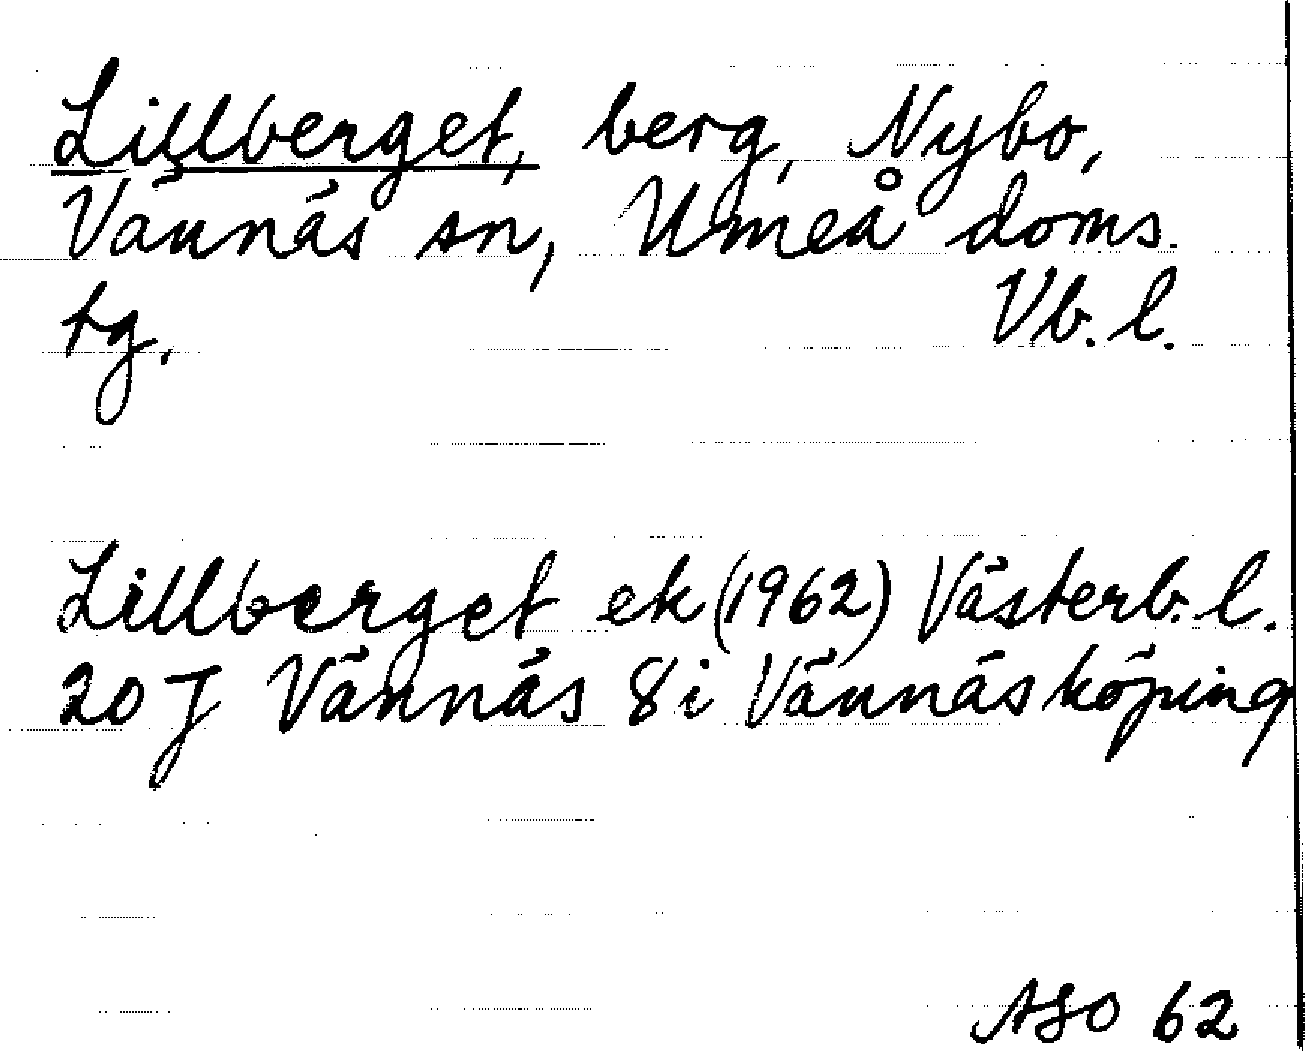 Lillberget, berg, Nybo,
Vännäs sn, Umeå doms.
tg, Vb. l.
Lillberget ek (1962) Västerb. l.
20 J Vännäs 8 i Vännäsköping
ASO 62